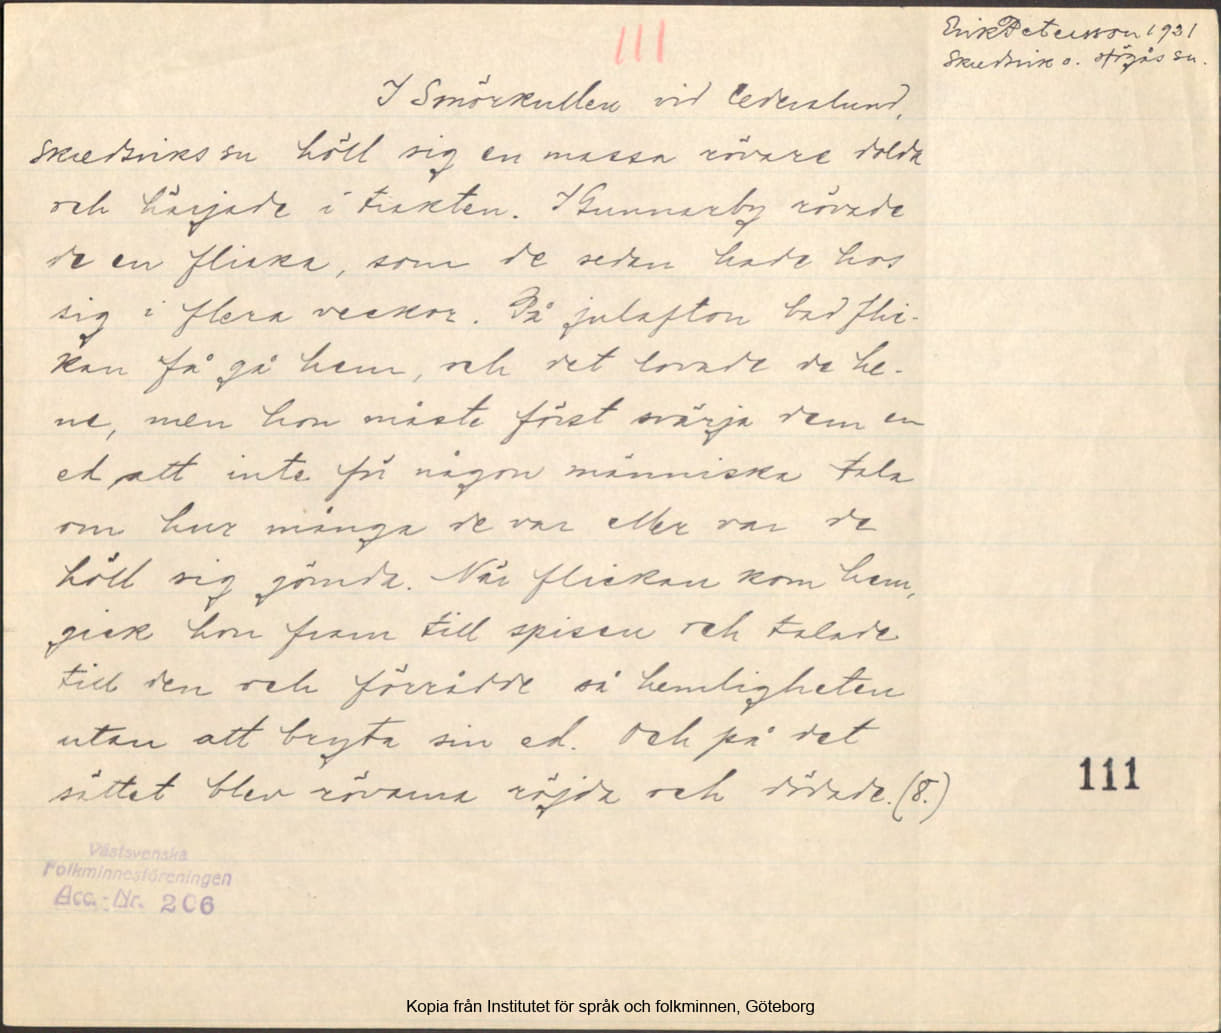 111
Erik Petersson 1921
Skredsvik o. Högås sn.
I Smörkullen vid Cederslund,
Skredsviks sn höll sig en massa rövare dolda
och härjade i trakten. I Gunnarby rövade
de en flicka, som de sedan hade hos
sig i flera veckor. På julafton bad fli-
kan få gå hem, och det lovade de he-
ne, men hon måste först svärja dem en
ed, att inte för någon människa tala
om hur många de var eller var de
höll sig gömda. När flickan kom hem,
gick hon fram till spisen och talade
till den och förrådde så hemligheten
utan att bryta sin ed. Och på det
sättet blev rövarna röjda och dödade. (8.)
111
Västsvenska
Folkminnesföreningen
Acc.-Nr. 206
Kopia från Institutet för språk och folkminnen, Göteborg